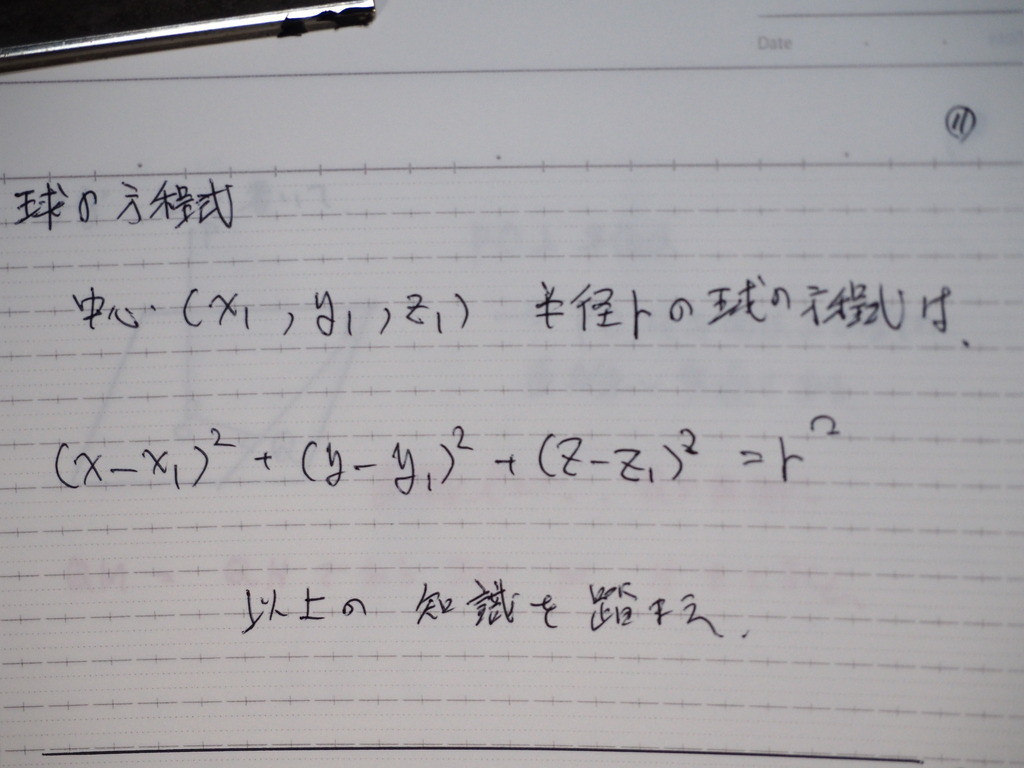 Date
⑪
球の方程式
中心 (x₁, y₁, z₁) 半径rの球の方程式は、
(x-x₁)² + (y-y₁)² + (z-z₁)² = r²
以上の知識を踏まえ、